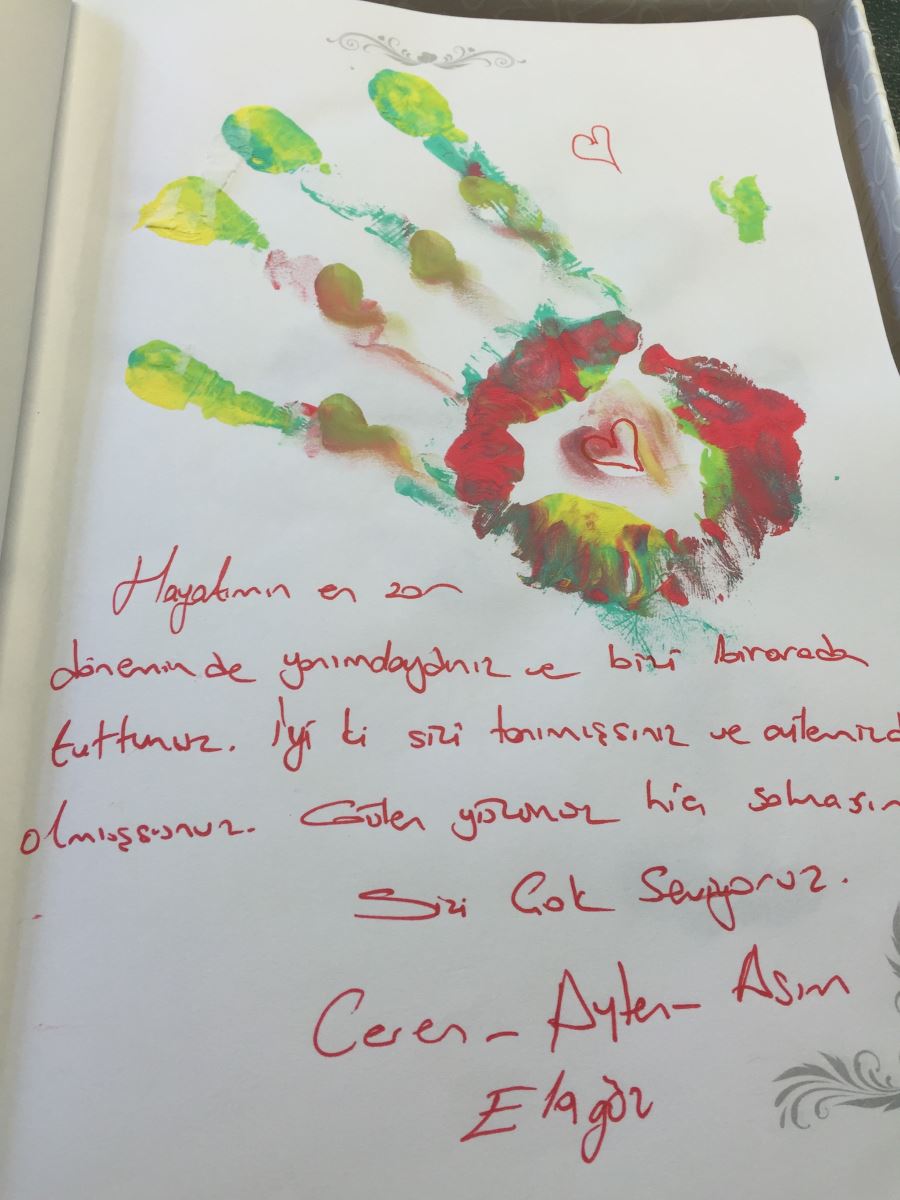 Hayatımın en zor
döneminde yanımdaydınız ve bizi birarada
tuttunuz. İyi ki sizi tanımışsınız ve ailemizd
olmuşsunuz. Güler yüzünüz hiç solmasın
Sizi Çok Seviyoruz.
Ceren - Ayten - Asım
Elagöz